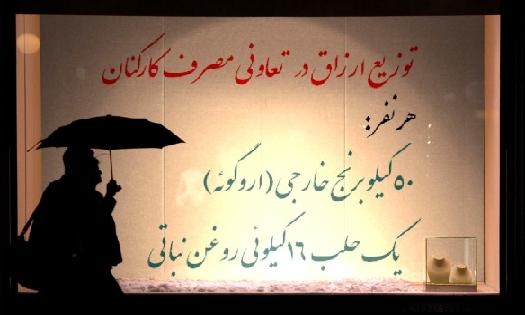 توزیع ارزاق در تعاونی مصرف کارکنان
هر نفر:
۵۰ کیلو برنج خارجی (اروگوئه)
یک حلب ۱۶ کیلوئی روغن نباتی